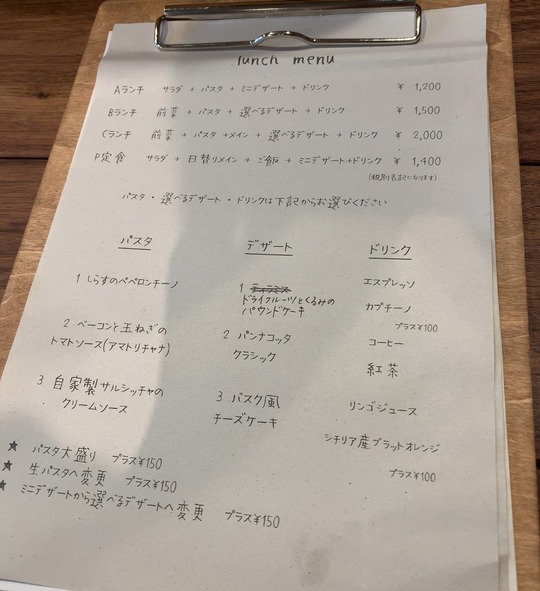 lunch menu
Aランチ サラダ + パスタ + ミニデザート + ドリンク ¥ 1,200
Bランチ 前菜 + パスタ + 選べるデザート + ドリンク ¥ 1,500
Cランチ 前菜 + パスタ +メイン + 選べるデザート + ドリンク ¥ 2,000
P定食 サラダ + 日替りメイン + ご飯 + ミニデザート+ドリンク ¥ 1,400
(税別表記になります)
パスタ・選べるデザート・ドリンクは下記からお選びください
パスタ
1 しらすのペペロンチーノ
2 ベーコンと玉ねぎの
トマトソース(アマトリチャナ)
3 自家製サルシッチャの
クリームソース
デザート
1 ティラミス
ドライフルーツとくるみの
パウンドケーキ
2 パンナコッタ
クラシック
3 バスク風
チーズケーキ
ドリンク
エスプレッソ
カプチーノ
プラス¥100
コーヒー
紅茶
リンゴジュース
シチリア産ブラットオレンジ
プラス¥100
★ パスタ大盛り プラス¥150
★ 生パスタへ変更 プラス¥150
★ ミニデザートから選べるデザートへ変更 プラス¥150